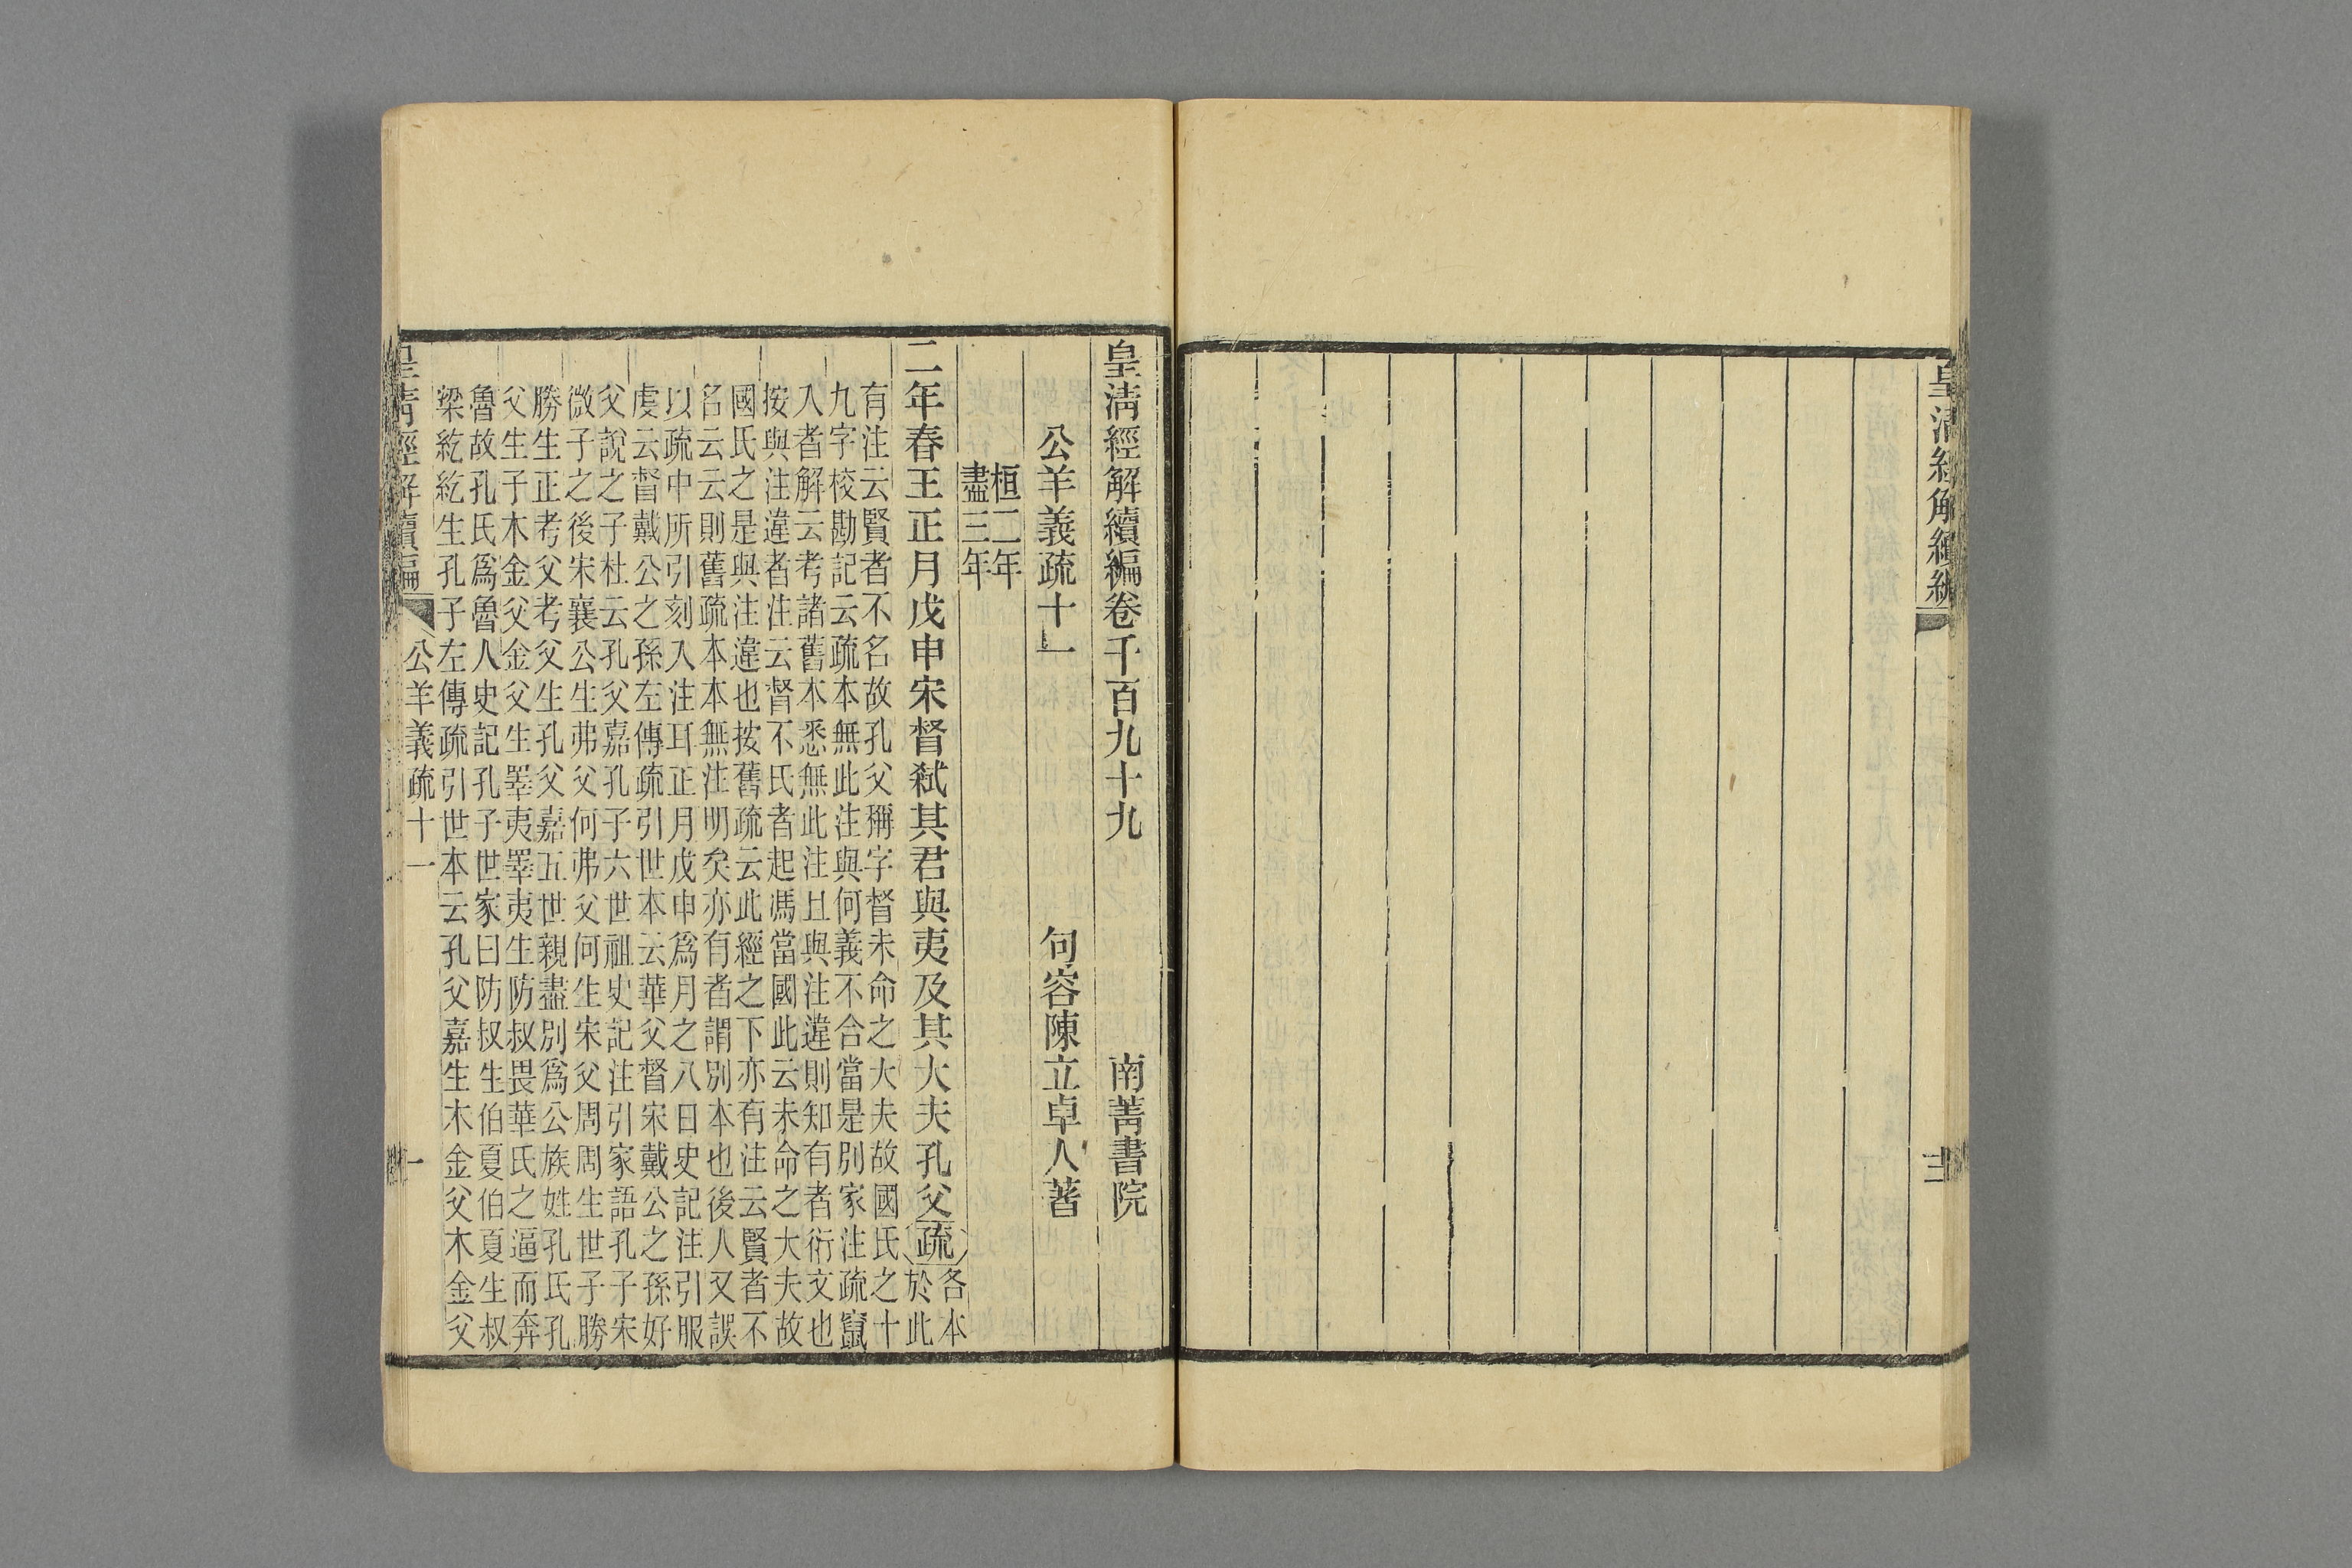 皇清經解續編
皇清經解續編卷千百九十九
南菁書院
公羊義疏十一
句容陳立卓人著
桓二年
盡三年
二年春王正月戊申宋督弑其君與夷及其大夫孔父疏各本
於此
有注云賢者不名故孔父稱字督未命之大夫故國氏之十
九字校勘記云疏本無此注與何義不合當是別家注疏竄
入者解云考諸舊本悉無此注且與注違則知有者衍文也
按與注違者注云督不氏者起馮當國此云未命之大夫故
國氏之是與注違也按舊疏云此經之下亦有注云賢者不
名云云則舊疏本本無注明矣亦有者謂別本也後人又誤
以疏中所引刻入注耳正月戊申爲月之八日史記注引服
虔云督戴公之孫左傳疏引世本云華父督宋戴公之孫好
父說之子杜云孔父嘉孔子六世祖史記注引家語孔子宋
微子之後宋襄公生弗父何弗父何生宋父周周生世子勝
勝生正考父考父生孔父嘉五世親盡別爲公族姓孔氏孔
父生子木金父金父生睪夷睪夷生防叔畏華氏之逼而奔
魯故孔氏爲魯人史記孔子世家曰防叔生伯夏伯夏生叔
梁紇紇生孔子左傳疏引世本云孔父嘉生木金父木金父
皇清經解續編
公羊義疏十一
一